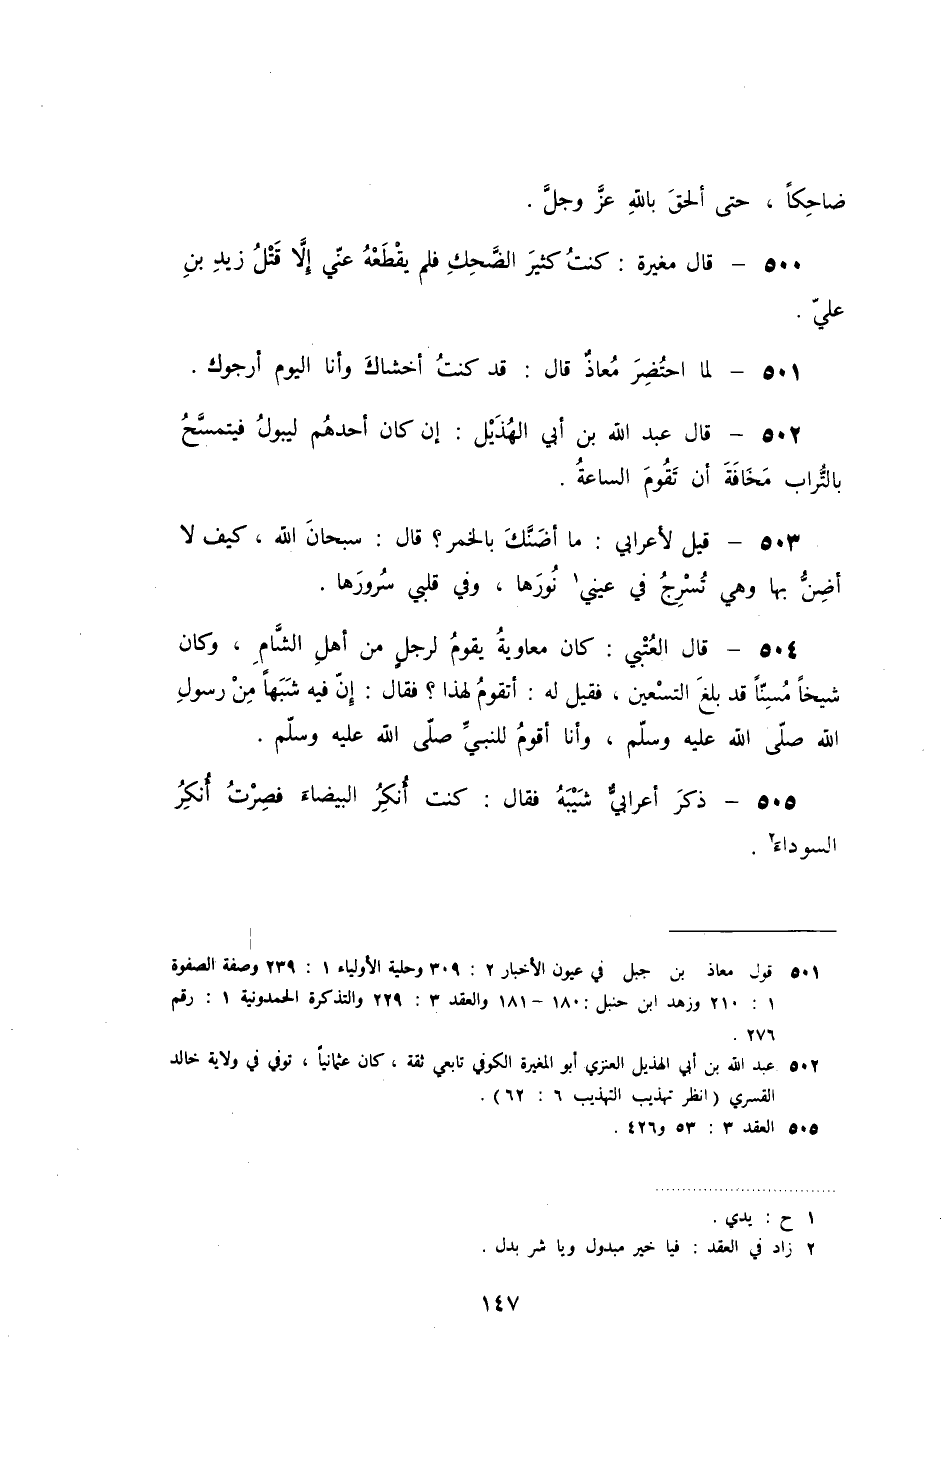 ضاحِكاً ، حتى ألحقَ باللهِ عزَّ وجلَّ .
٥٠٠ – قال مغيرة : كنتُ كثيرَ الضَّحِكِ فلم يقْطَعْهُ عنّي إلَّا قَتْلُ زيدِ بنِ
عليّ .
٥٠١ – لما احتُضِرَ مُعاذٌ قال : قد كنتُ أخشاكَ وأنا اليوم أرجوك .
٥٠٢ – قال عبد الله بن أبي الهُذَيْل : إن كان أحدهُم ليبولُ فيتمسَّحُ
بالتُّراب مَخَافَةَ أن تَقُومَ الساعةُ .
٥٠٣ – قيل لأعرابي : ما أضَنَّكَ بالخمر؟ قال : سبحانَ الله ، كيف لا
أضِنُّ بها وهي تُسْرِجُ في عيني١ نُورَها ، وفي قلبي سُرورَها .
٥٠٤ – قال العُتْبي : كان معاويةُ يقومُ لرجلٍ من أهلِ الشَّامِ ، وكان
شيخاً مُسِنّاً قد بلغَ التسْعين ، فقيل له : أتقومُ لهذا ؟ فقال : إنّ فيه شَبَهاً مِنْ رسولِ
الله صلّى الله عليه وسلّم ، وأنا أقومُ للنبيِّ صلّى الله عليه وسلّم .
٥٠٥ – ذكرَ أعرابيٌّ شَيْبَهُ فقال : كنت أُنكِرُ البيضاءَ فصِرْتُ أُنكِرُ
السوداءَ٢ .
٥٠١ قول معاذ بن جبل في عيون الأخبار ٢ : ٣٠٩ وحلية الأولياء ١ : ٢٣٩ وصفة الصفوة
١ : ٢١٠ وزهد ابن حنبل : ١٨٠ –١٨١ والعقد ٣ : ٢٢٩ والتذكرة الحمدونية ١ : رقم
٢٧٦ .
٥٠٢ عبد الله بن أبي الهذيل العنزي أبو المغيرة الكوفي تابعي ثقة ، كان عثمانياً ، توفي في ولاية خالد
القسري (انظر تهذيب التهذيب ٦ : ٦٢) .
٥٠٥ العقد ٣ : ٥٣ و٤٢٦ .
١ ح : يدي .
٢ زاد في العقد : فيا خير مبدول ويا شر بدل .
١٤٧